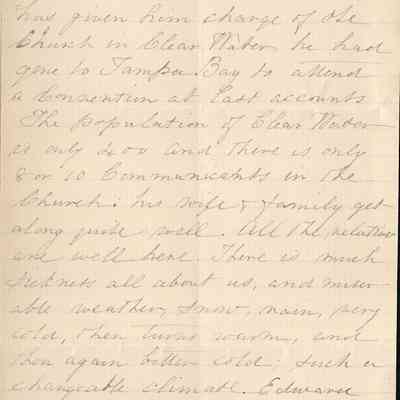 has given him charge of the
Church in Clear Water he had
gone to Tampa Bay to attend
a Convention at last accounts
The Population of Clear Water
is only 400 and there is only
8 or 10 Communicants in the
Church. his wife & family get
along quite well. All the relatives
are well here. There is much
sickness all about us, and miser
able weather, snow, rain, very
cold, then turns warm, and
then again bitter cold; such a
changeable climate. Edward